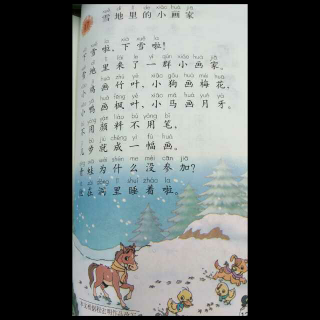 xuě dì lǐ de xiǎo huà jiā
雪地里的小画家
xuě la xià xuě la
下雪啦,下雪啦!
dì lǐ lái le yì qún xiǎo huà jiā
雪地里来了一群小画家。
jī huà zhú yè xiǎo gǒu huà méi huā
小鸡画竹叶,小狗画梅花,
yā huà fēng yè xiǎo mǎ huà yuè yá
小鸭画枫叶,小马画月牙。
yòng yán liào bú yòng bǐ
不用颜料不用笔,
bù jiù chéng yì fú huà
几步就成一幅画。
wā wèi shén me méi cān jiā
青蛙为什么没参加?
zài dòng lǐ shuì zháo la
他在洞里睡着啦。